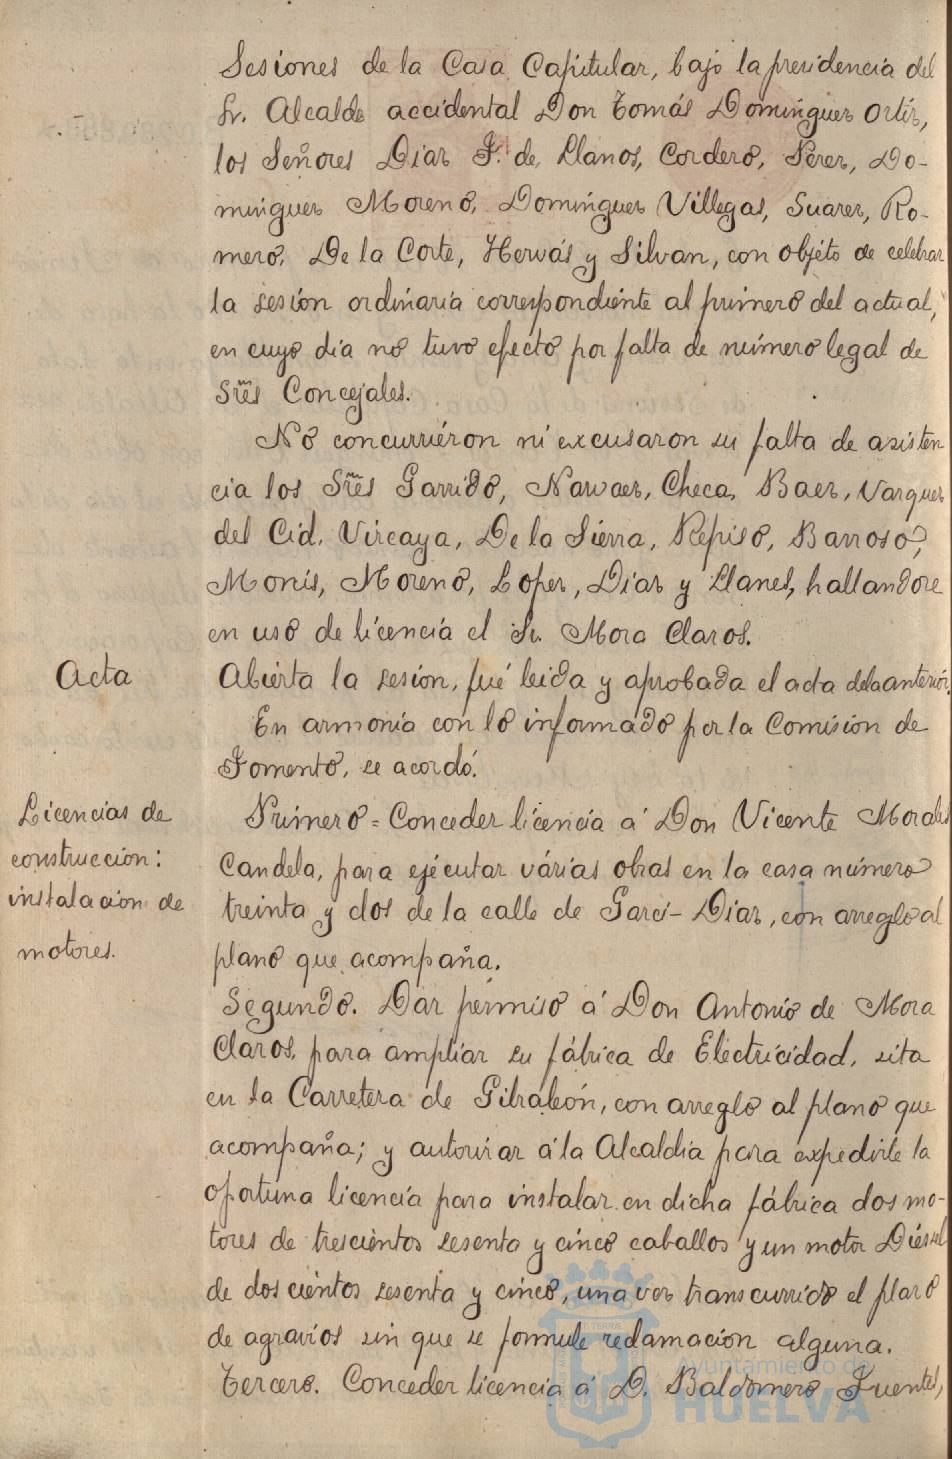 Sesiones de la Casa Capitular, bajo la presidencia del
Sr. Alcalde accidental Don Tomás Dominguez Ortíz,
los Señores Diaz F. de Llanos, Cordero, Perez, Do-
minguez Moreno, Dominguez Villegas, Suarez, Ro-
mero, De la Corte, Hervás y Silvan, con objeto de celebrar
la sesión ordinaria correspondiente al primero del actual,
en cuyo dia no tuvo efecto por falta de número legal de
Srẽs Concejales.
No concurrieron ni excusaron su falta de asisten
cia los Srẽs Garrido, Narvaez, Checa, Baez, Vazquez
del Cid, Vizcaya, De la Sierra, Repiso, Barroso,
Monis, Moreno, Lopez, Diaz y Llanes, hallandose
en uso de licencia el Sr. Mora Claros.
Acta
Abierta la sesión, fué leida y aprobada el acta dela anterior.
En armonía con lo informado por la Comision de
Fomento, se acordó.
Licencias de
construccion:
instalacion de
motores.
Primero = Conceder licencia á Don Vicente Morales
Candela, para ejecutar várias obras en la casa número
treinta y dos de la calle de Garci-Diaz, con arreglo al
plano que acompaña.
Segundo. Dar permiso á Don Antonio de Mora
Claros, para ampliar su fábrica de Electricidad, sita
en la Carretera de Gibraleón, con arreglo al plano que
acompaña; y autorizar á la Alcaldía para expedirle la
oportuna licencia para instalar en dicha fábrica dos mo-
tores de trescientos sesenta y cinco caballos y un motor Diéssel
de doscientos sesenta y cinco, una vez transcurrido el plazo
de agravios sin que se formule reclamacion alguna.
Tercero. Conceder licencia á D. Baldomero Fuentes,
Ayuntamiento de
HUELVA